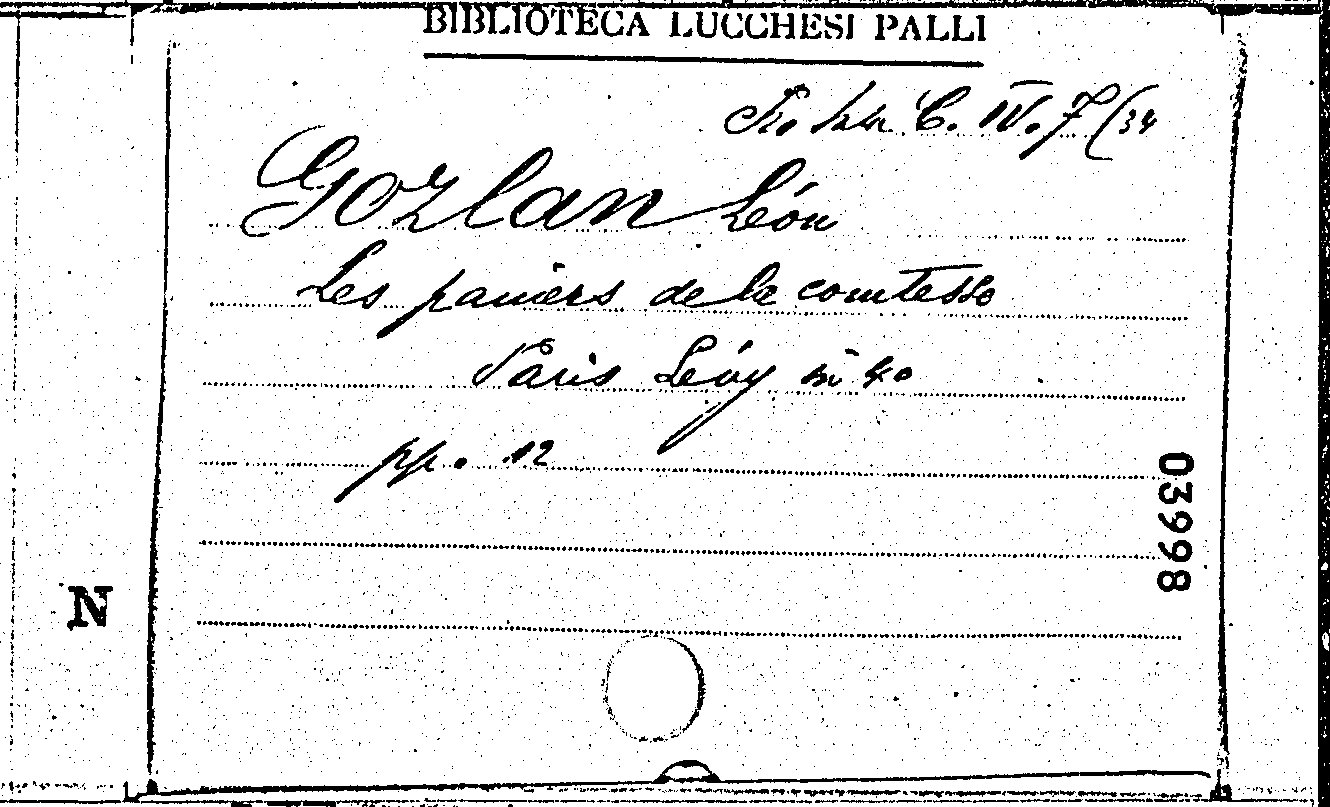 BIBLIOTECA LUCCHESI PALLI
C. IV. 7 (34
Gozlan Léon
Les paniers de la comtesse
Paris Lévy in 4o
pp. 12
03998
N